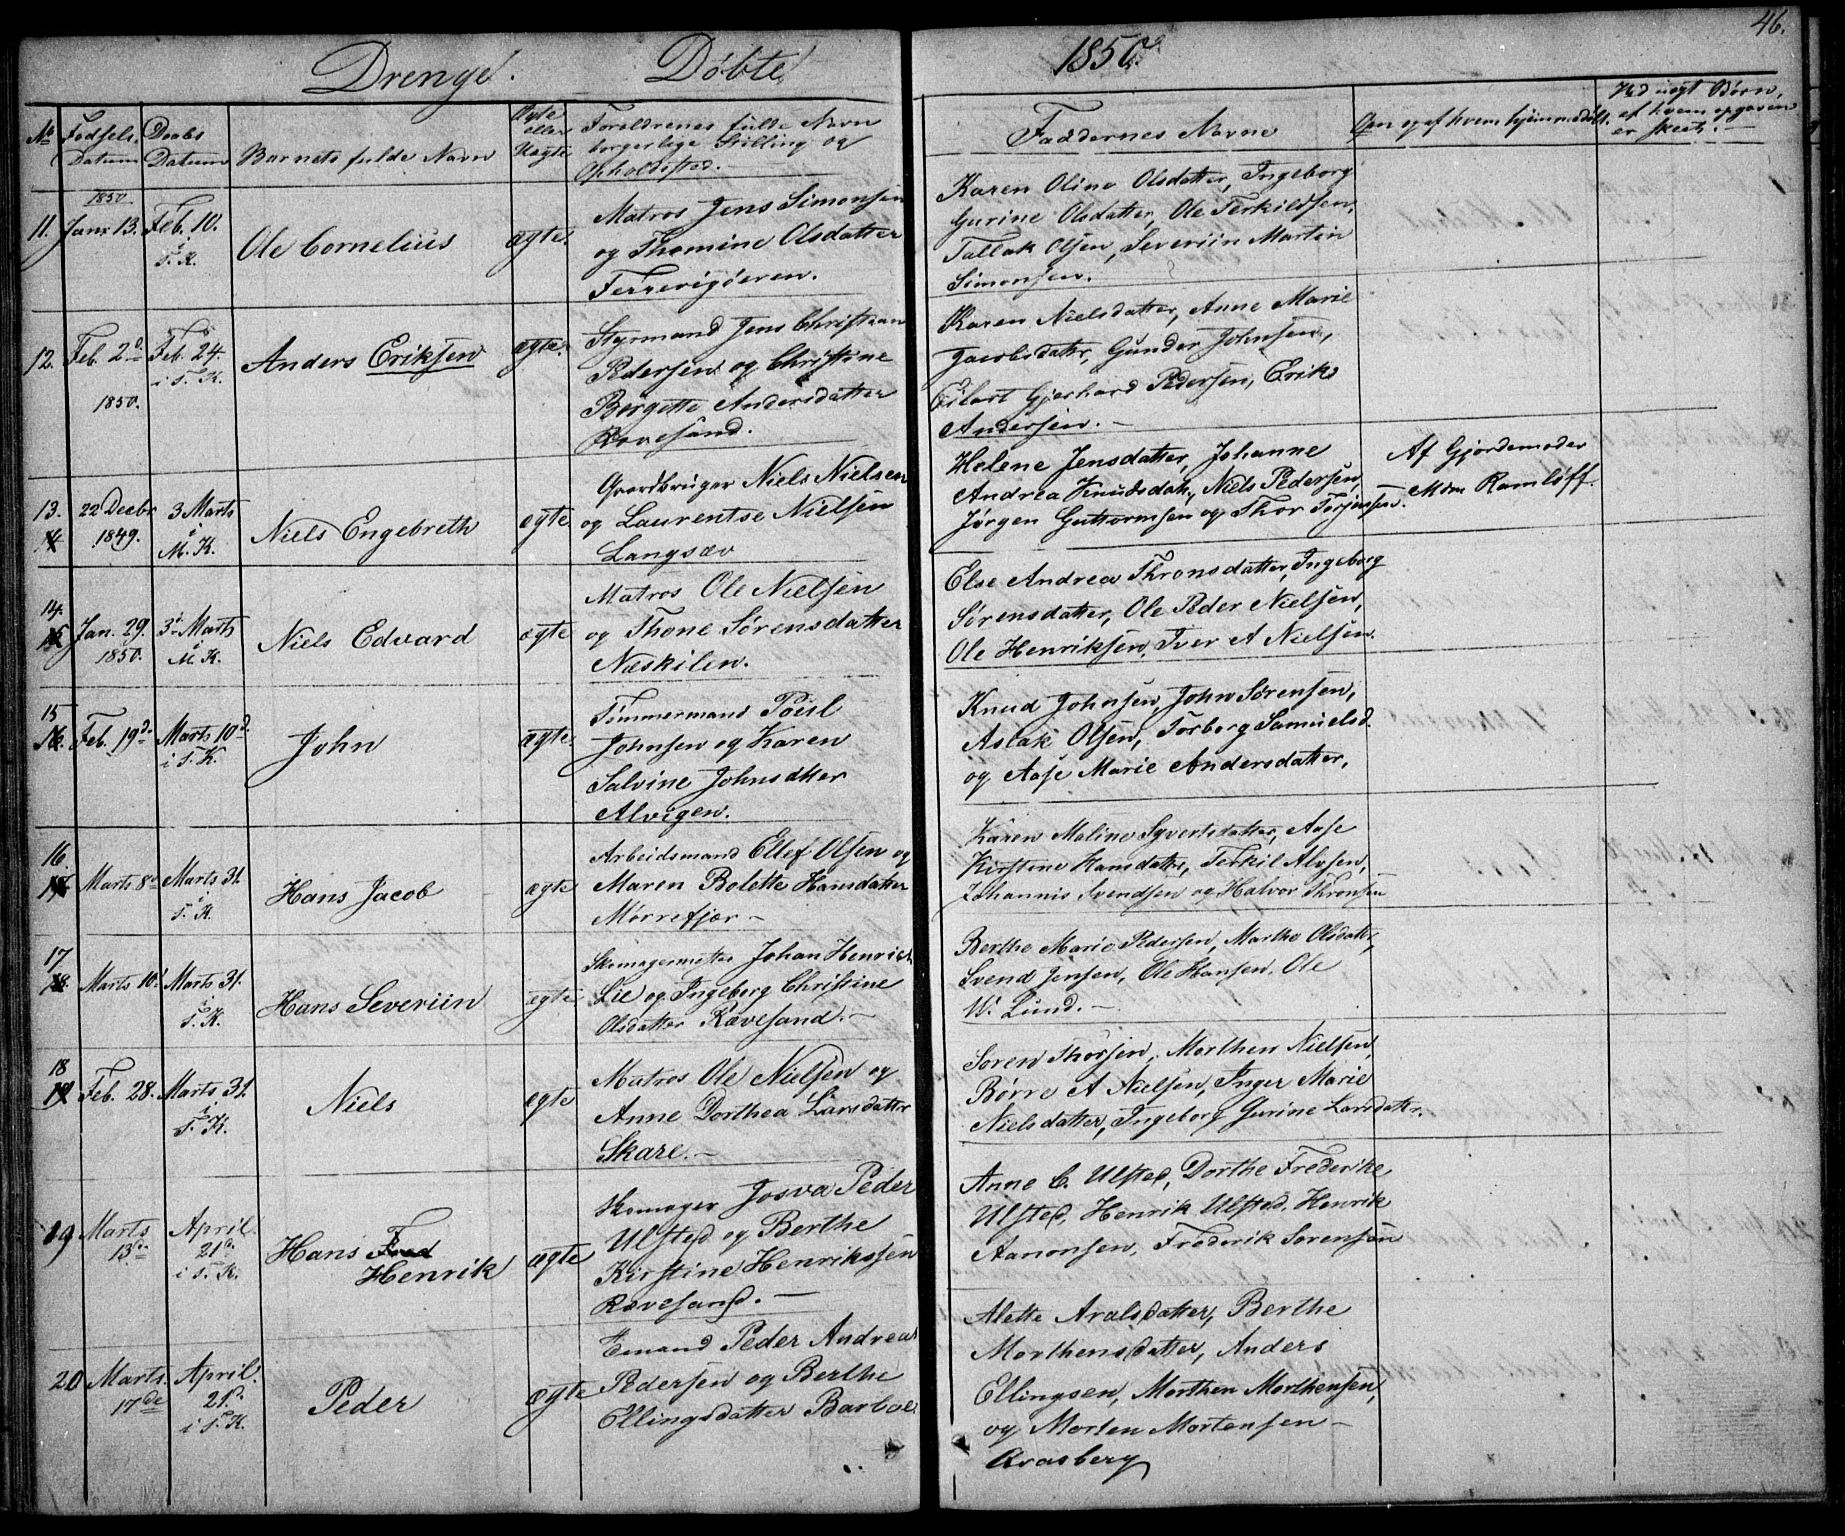 46.
Drenge. Døbte 1850.
No Fødsels Datum
Daabs Datum
Barnets fulde Navn
Ægte eller Uægte
Forældrenes fulde Navn
borgerlige Stilling og
Opholdssted.
Faddernes Navne
Om og af hvem hjemmedøbt.
Ved uægt Børn,
af hvem opgaven
er skeet.
11. 1850 Janr 13. Feb. 10. i T. K. Ole Cornelius ægte.
Matros Jens Simonsen
og Thomine Olsdatter
Færrevigøeren.
Karen Oline Olsdatter, Ingeborg
Gurine Olsdatter, Ole Terkildsen,
Tallak Olsen, Severiin Martin
Simonsen.
12. Feb. 2d 1850. Feb. 24. i T. K. Anders Eriksen ægte.
Styrmand Jens Christian
Pedersen og Christine
Börgette Andersdatter
Rævesand.
Karen Nielsdatter, Anne Marie
Jacobsdatter, Gunder Johnsen,
Eilert Gjerhard Pedersen, Erik
Andersen.
13. 22 Decbr 1849. 3 Marts i M. K. Niels Engebreth ægte
Gaardbruger Niels Nielsen
og Laurentse Nielsen
Langsæv
Helene Jensdatter, Johanne
Andrea Knudsdatr, Niels Pedersen,
Jørgen Guttormsen og Thor Torjussen.
Af Gjordemoder
Mdm Ramløff.
14. 15 Jan. 29. 1850. 3 Marts i M. K. Niels Edvard ægte
Matros Ole Nielsen
og Thone Sørensdatter
Næskilen.
Else Andrea Thronsdatter, Ingeborg
Sørensdatter, Ole Peder Nielsen,
Ole Henriksen, Iver A Nielsen.
15 16. Feb. 19d Marts 10d i T. K. John ægte.
Tömmermand Poul
Johnsen og Karen
Salvine Johnsdtter
Alvigen.
Knud Johnsen, John Sørensen,
Aslak Olsen, Torborg Samuelsd.
og Aase Marie Andersdatter.
16. 17 Marts 8d Marts 31. i T. K. Hans Jacob ægte
Arbeidsmand Ellef Olsen og
Maren Bolette Hansdatter
Mørrefjær
Karen Maline Syvertsdatter, Aase
Kirstine Hansdatter, Terkil Alvsen,
Johannis Svendsen og Halvor Thronsen
17 18. Marts 10d Marts 31. i T. K. Hans Severiin ægte
Skomagermester Johan Henrich
Lie og Ingeborg Christine
Olsdatter Rævesand.
Berthe Marie Pedersen, Marthe Olsdatter,
Svend Jensen, Ole Hansen, Ole
W. Lund.
18 19 Feb. 28. Marts 31. i T. K. Niels ægte
Matros Ole Nielsen og
Anne Dorthea Larsdatter
Skare.
Søren Thorsen, Morthen Nielsen,
Børre A Nielsen, Inger Marie
Nielsdatter, Ingeborg Gurine Larsdatter.
19 Marts 13de April 21d. i T. K. Hans Fred Henrik ægte
Skomager Josva Peder
Ulsted og Berthe
Kirstine Henrikssen
Rævesand.
Anne C. Ulsted, Dorthe Frederike
Ulsted, Henrik Ulsted, Henrik
Aanonsen, Frederik Sørensen
20 Marts. 17de April. 21d. i T. K. Peder ægte
Emand Peder Andreas
Pedersen og Berthe
Ellingsdatter Barboe
Alette Aralsdatter, Berthe
Morthensdatter, Anders
Ellingsen, Morthen Morthensen,
og Morten Mortensen
Arasberg